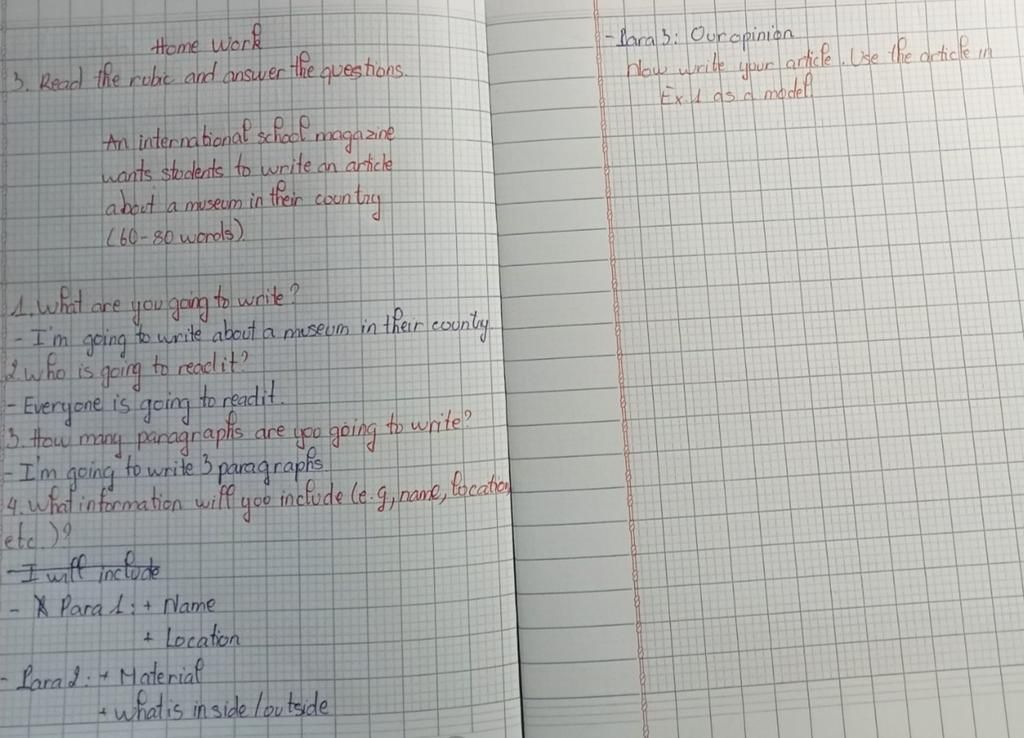 Home Work
3. Read the rubic and answer the questions.
An international school magazine
wants students to write an article
about a museum in their country
(60-80 words).
1. What are you going to write?
- I'm going to write about a museum in their county
2. Who is going to read it?
- Everyone is going to read it.
3. How many paragraphs are you going to write?
- I'm going to write 3 paragraphs
4. What information will you include (e.g, name, location,
etc.)?
- I will include
- Para 1: + Name
+ Location
- Para 2: + Material
+ What is inside/outside
- Para 3: Our opinion
Now write your article. Use the article in
Ex.1 as a model